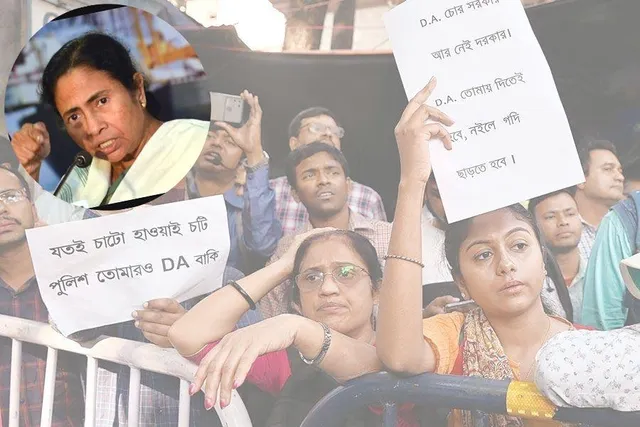 যতই চাটো হাওয়াই চটি
পুলিশ তোমারও DA বাকি
D.A. চোর সরকার
আর নেই দরকার।
D.A. তোমায় দিতেই
হবে, নইলে গদি
ছাড়তে হবে।